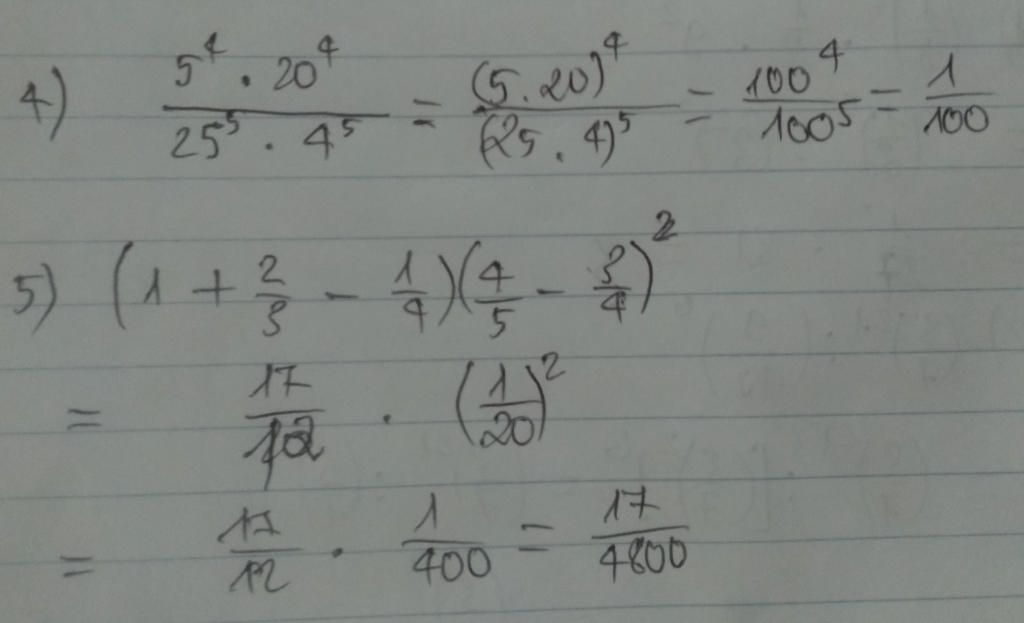 4) 5⁴ . 20⁴ / 25⁵ . 4⁵ = (5.20)⁴ / (25.4)⁵ = 100⁴ / 100⁵ = 1/100
5) (1 + 2/3 - 1/4)(4/5 - 3/4)²
= 17/12 . (1/20)²
= 17/12 . 1/400 = 17/4800